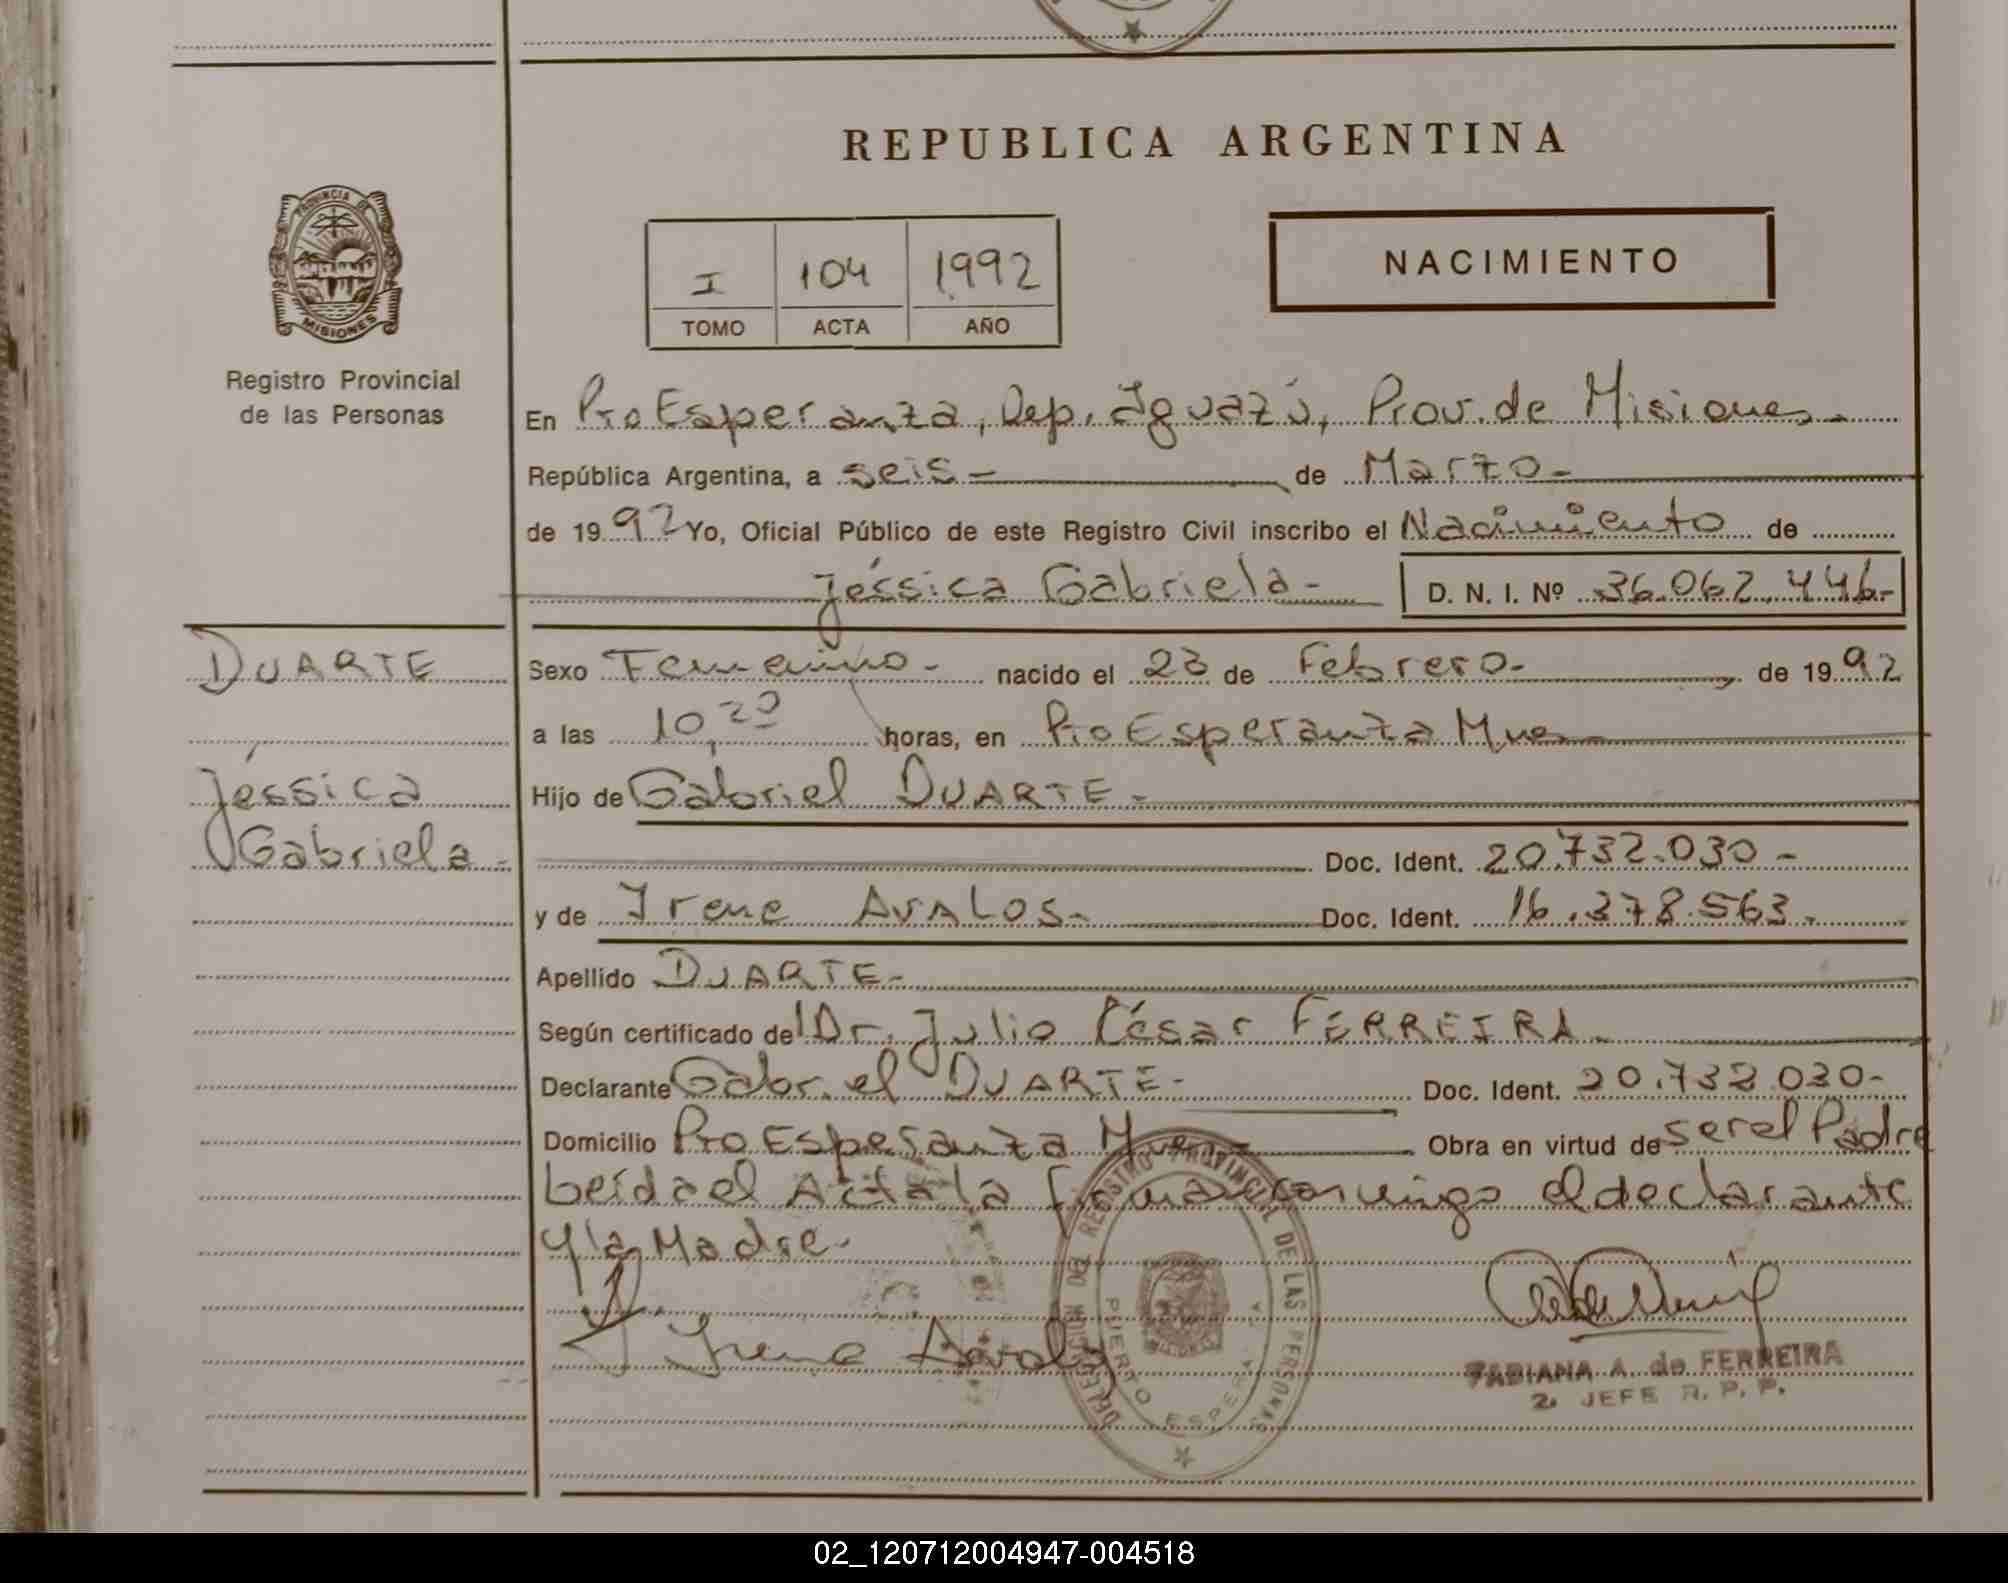 REPUBLICA ARGENTINA
PROVINCIA DE
MISIONES
Registro Provincial
de las Personas
I 104 1992
TOMO ACTA AÑO
NACIMIENTO
En Pto Esperanza, Dep. Iguazú, Prov. de Misiones-
República Argentina, a seis- de Marzo-
de 1992 Yo, Oficial Público de este Registro Civil inscribo el Nacimiento de
Jéssica Gabriela- D. N. I. Nº 36.062.446-
DUARTE
Jéssica
Gabriela-
Sexo Femenino- nacido el 23 de Febrero- de 1992
a las 10,20 horas, en Pto Esperanza Mnes-
Hijo de Gabriel DUARTE-
Doc. Ident. 20.732.030-
y de Irene AVALOS- Doc. Ident. 16.378.563.
Apellido DUARTE-
Según certificado del Dr. Julio César FERREIRA
Declarante Gabriel DUARTE- Doc. Ident. 20.732.030-
Domicilio Pto Esperanza Mnes- Obra en virtud de ser el Padre
Leída el Acta la firman conmigo el declarante
y la Madre-
Irene Avalos
DELEGACION DEL REGISTRO PROVINCIAL DE LAS PERSONAS
PUERTO ESPERA
FABIANA A. de FERREIRA
2. JEFE R. P. P.
02_120712004947-004518